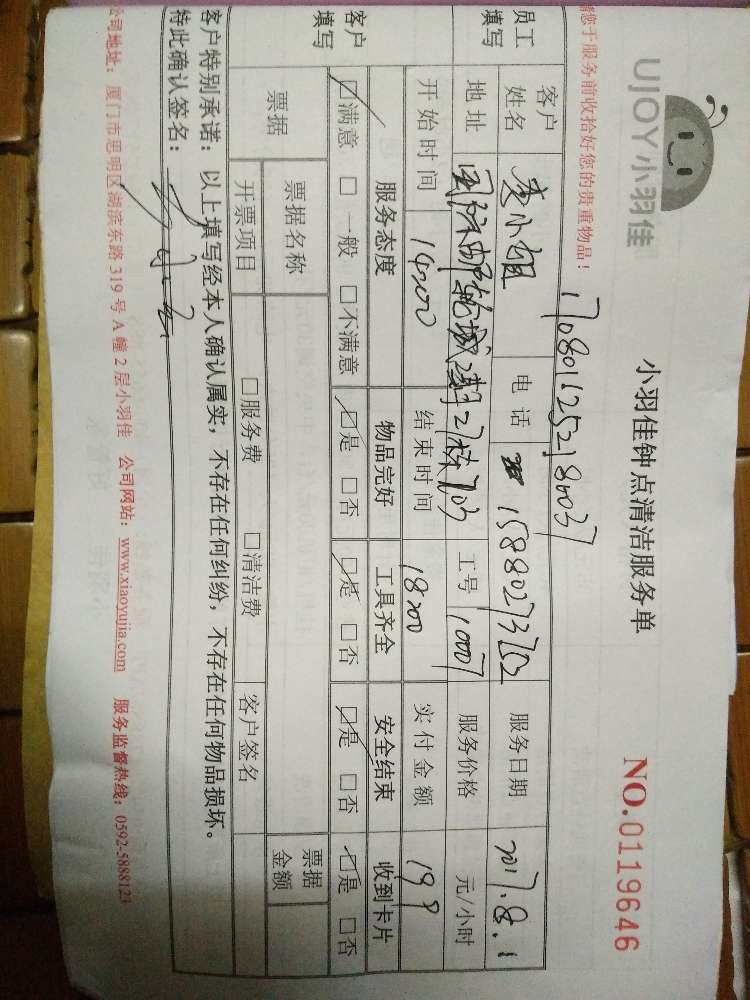 UJOY小羽佳
小羽佳钟点清洁服务单
NO.0119646
请您于服务前收拾好您的贵重物品!
员工填写
客户姓名 李小姐 电话 服务日期 2017.8.1
地址 国际邮轮城2期27栋703 工号 10007 服务价格 元/小时
开始时间 14:00 结束时间 18:00 实付金额 199
客户填写
服务态度 物品完好 工具齐全 安全结束 收到卡片
☑满意 □一般 □不满意 ☑是 □否 ☑是 □否 ☑是 □否 ☑是 □否
票据 票据名称 票据金额
开票项目 □服务费 □清洁费 客户签名
客户特别承诺:以上填写经本人确认属实,不存在任何纠纷,不存在任何物品损坏。
特此确认签名:
公司地址:厦门市思明区湖滨东路319号A幢2层小羽佳 公司网站:www.xiaoyujia.com 服务监督热线:0592-5888123